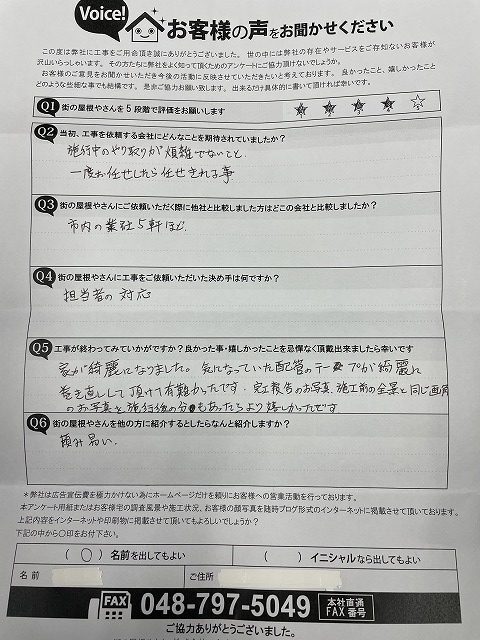 Voice!
お客様の声をお聞かせください
この度は弊社に工事をご用命頂き誠にありがとうございました。世の中には弊社の存在やサービスをご存知ないお客様が
沢山いらっしゃいます。その方たちに弊社をよく知って頂くためのアンケートにご協力頂けないでしょうか。
お客様のご意見をお聞かせいただき今後の活動に反映させていただきたいと考えております。良かったこと、嬉しかったこと
どのような些細な事でも結構です。是非ご協力お願い致します。出来るだけ具体的に書いて頂ければ幸いです。
Q1 街の屋根やさんを5段階で評価をお願いします
Q2 当初、工事を依頼する会社にどんなことを期待されていましたか?
施行中のやり取りが煩雑でないこと
一度お任せしたら任せきれる事
Q3 街の屋根やさんにご依頼いただく際に他社と比較しました方はどこの会社と比較しましたか?
市内の業社5軒ほど
Q4 街の屋根やさんに工事をご依頼いただいた決め手は何ですか?
担当者の対応
Q5 工事が終わってみていかがですか?良かった事・嬉しかったことを忌憚なく頂戴出来ましたら幸いです
家が綺麗になりました。気になっていた配管のテープが綺麗に
巻き直しして頂けて有難かったです。完工報告のお写真、施工前の全景と同じ画角
のお写真と施行後の分もあったらより嬉しかったです
Q6 街の屋根やさんを他の方に紹介するとしたらなんと紹介しますか?
頼み易い、
*弊社は広告宣伝費を極力かけない為にホームページだけを頼りにお客様への営業活動を行っております。
本アンケート用紙またはお客様宅の調査風景や施工状況、お客様の顔写真を随時ブログ形式のインターネットに掲載させて頂いております。
上記内容をインターネットや印刷物に掲載させて頂いてもよろしいでしょうか?
下記の中から〇印をお付下さい。
( 〇 ) 名前を出してもよい ( ) イニシャルなら出してもよい
名前 ご住所
FAX 048-797-5049 本社直通 FAX番号
ご協力ありがとうございました。